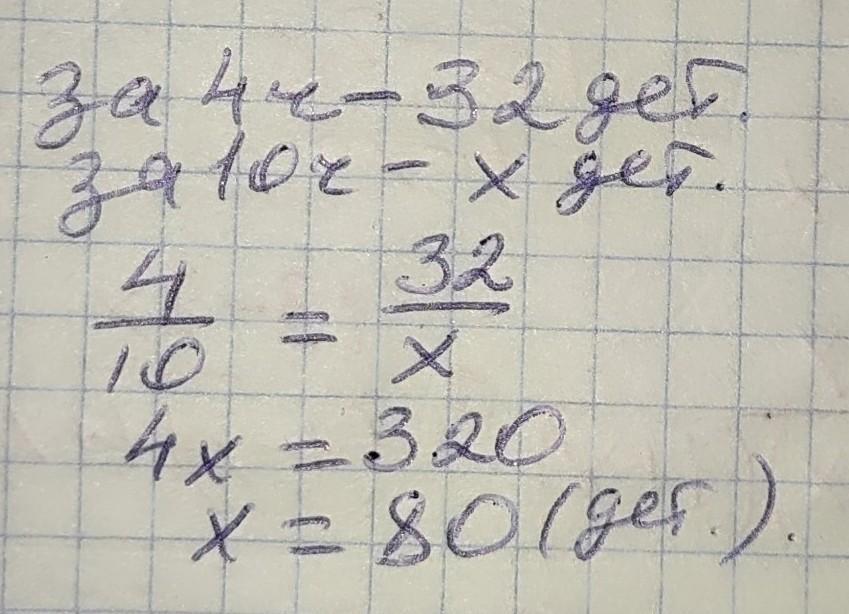 за 4ч – 32 дет.
за 10ч – x дет.
4/10 = 32/x
4x = 320
x = 80 (дет.).